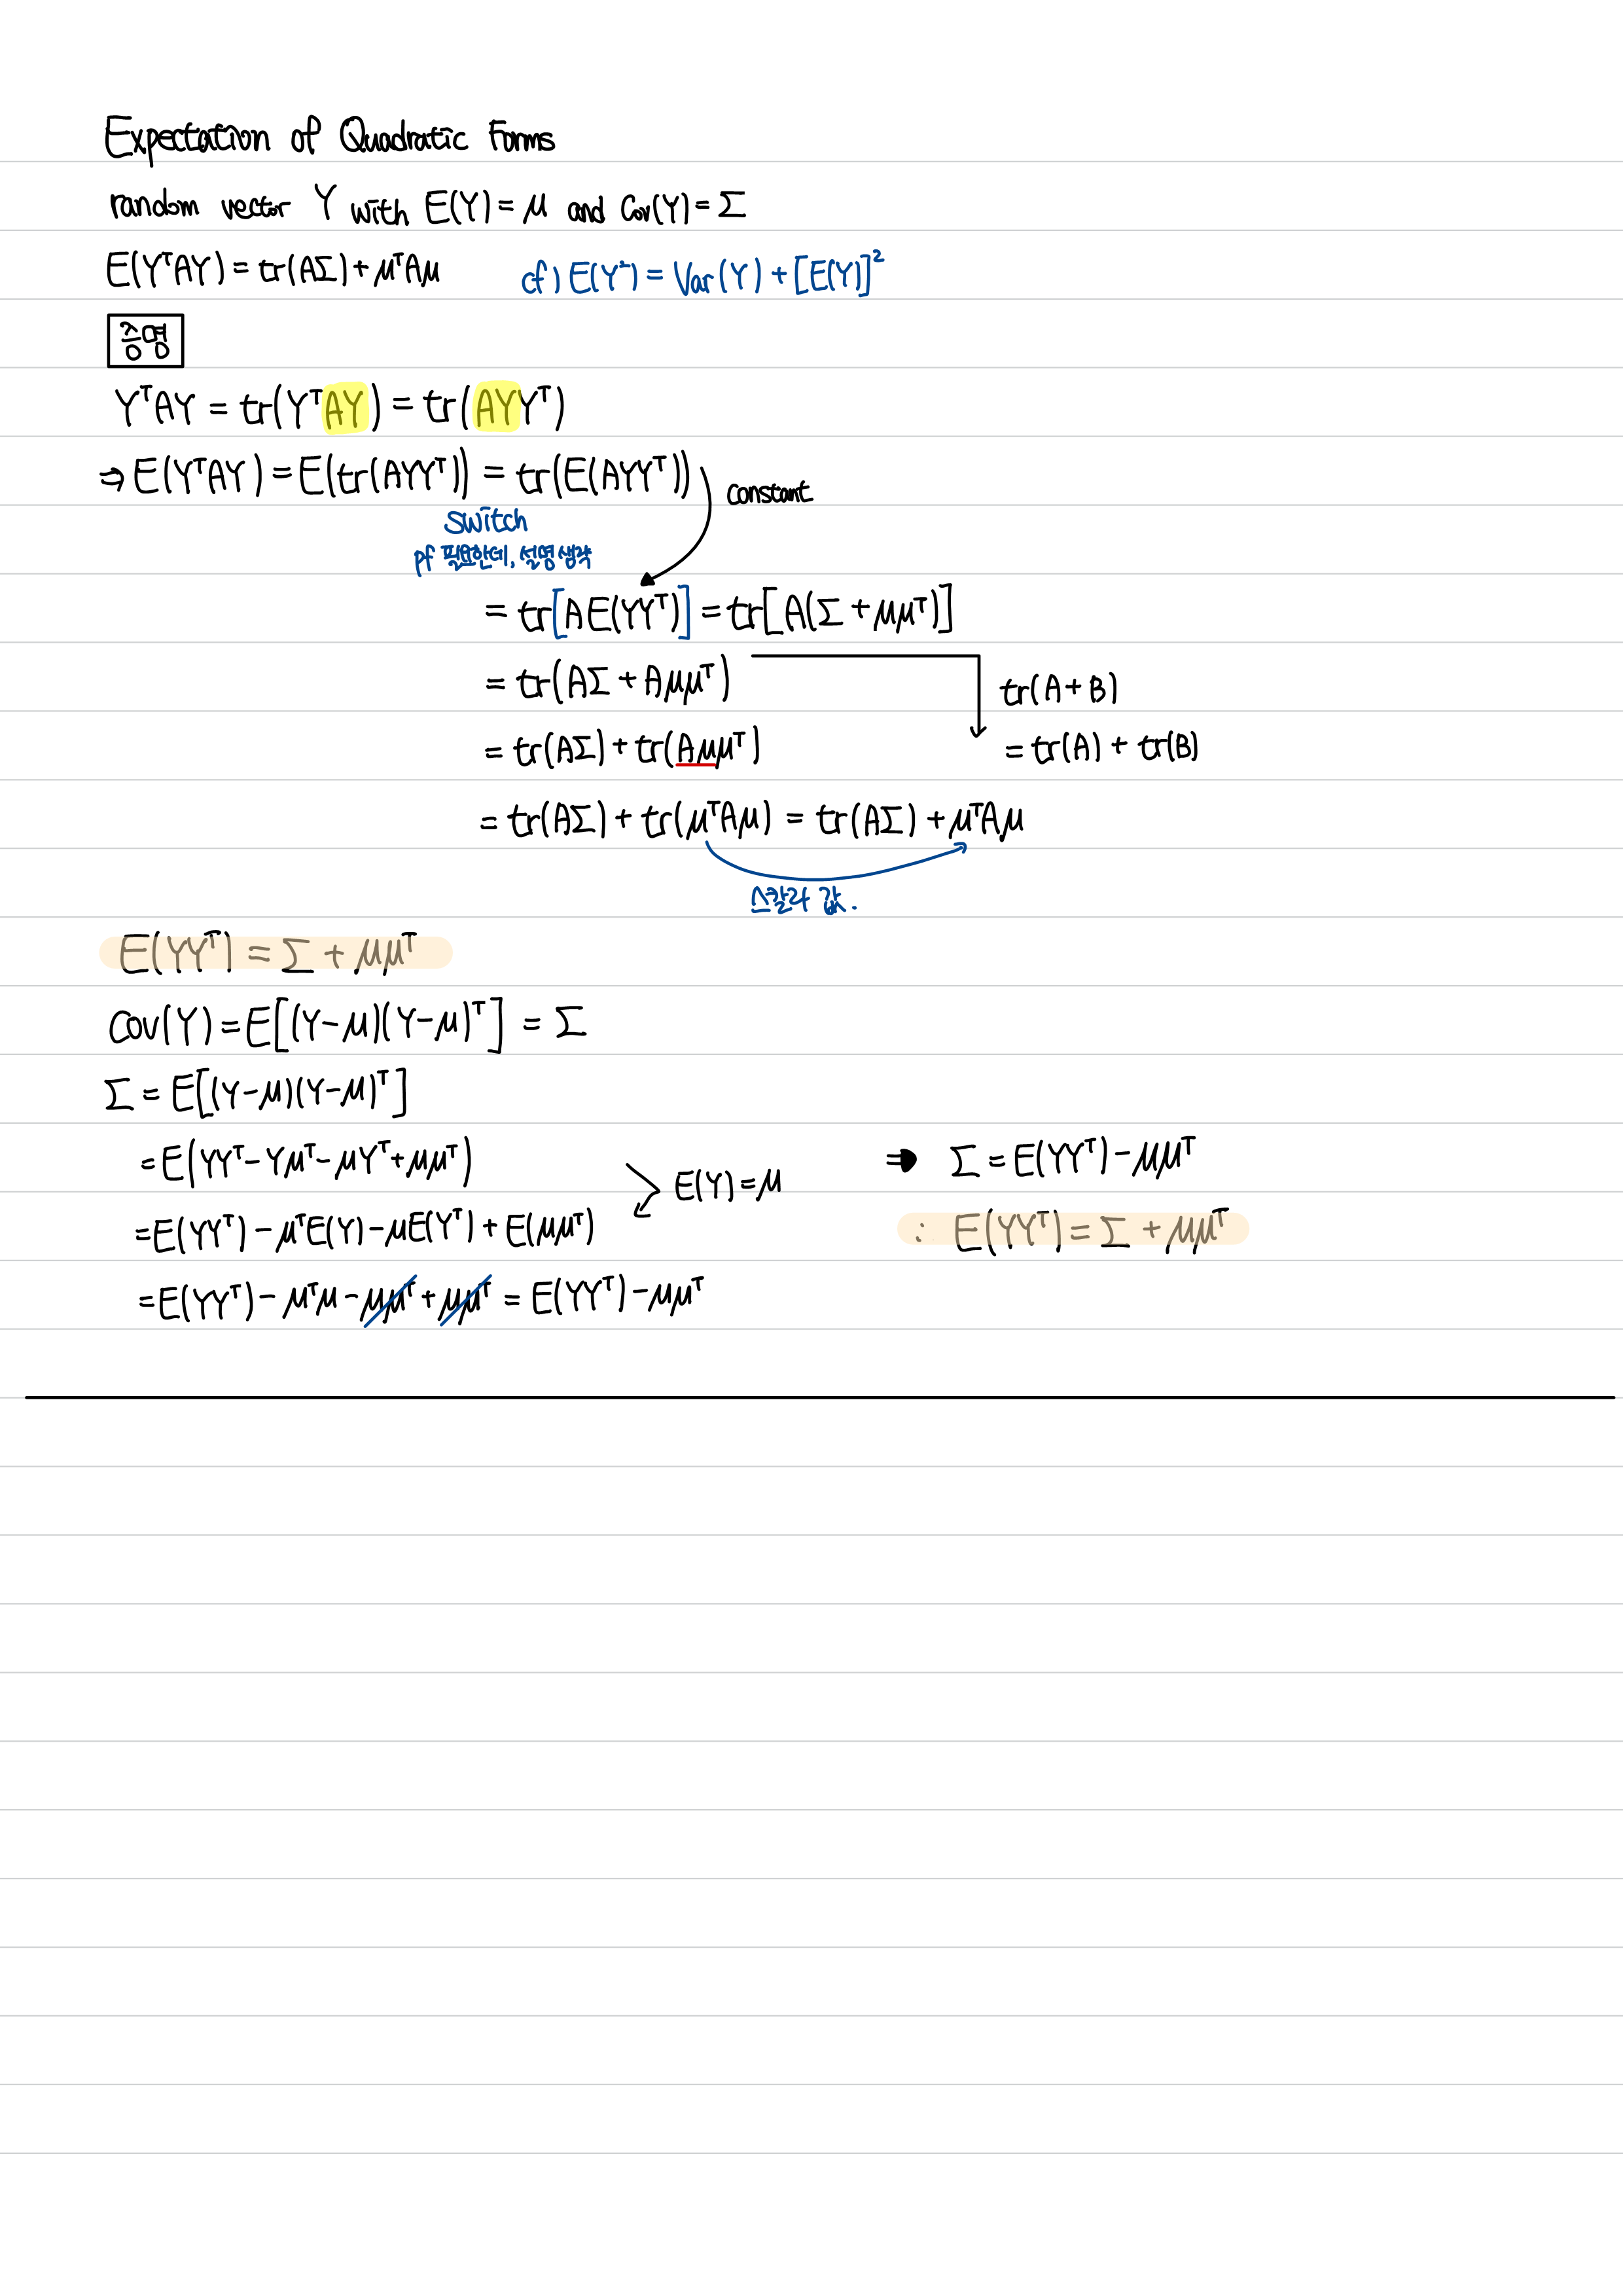 Expectation of Quadratic Forms
random vector Y with E(Y) = μ and Cov(Y) = Σ
E(YᵀAY) = tr(AΣ) + μᵀAμ cf) E(Y²) = Var(Y) + [E(Y)]²
증명
YᵀAY = tr(YᵀAY) = tr(AYYᵀ)
⇒ E(YᵀAY) = E(tr(AYYᵀ)) = tr(E(AYYᵀ)) constant
switch
pf 필요한데, 설명 생략
= tr[AE(YYᵀ)] = tr[A(Σ + μμᵀ)]
= tr(AΣ + Aμμᵀ)
tr(A + B)
= tr(AΣ) + tr(Aμμᵀ)
= tr(A) + tr(B)
= tr(AΣ) + tr(μᵀAμ) = tr(AΣ) + μᵀAμ
스칼라 값.
E(YYᵀ) = Σ + μμᵀ
Cov(Y) = E[(Y-μ)(Y-μ)ᵀ] = Σ
Σ = E[(Y-μ)(Y-μ)ᵀ]
= E(YYᵀ - Yμᵀ - μYᵀ + μμᵀ)
E(Y) = μ
= E(YYᵀ) - μᵀE(Y) - μE(Yᵀ) + E(μμᵀ)
= E(YYᵀ) - μᵀμ - μμᵀ + μμᵀ = E(YYᵀ) - μμᵀ
⇒ Σ = E(YYᵀ) - μμᵀ
∴ E(YYᵀ) = Σ + μμᵀ